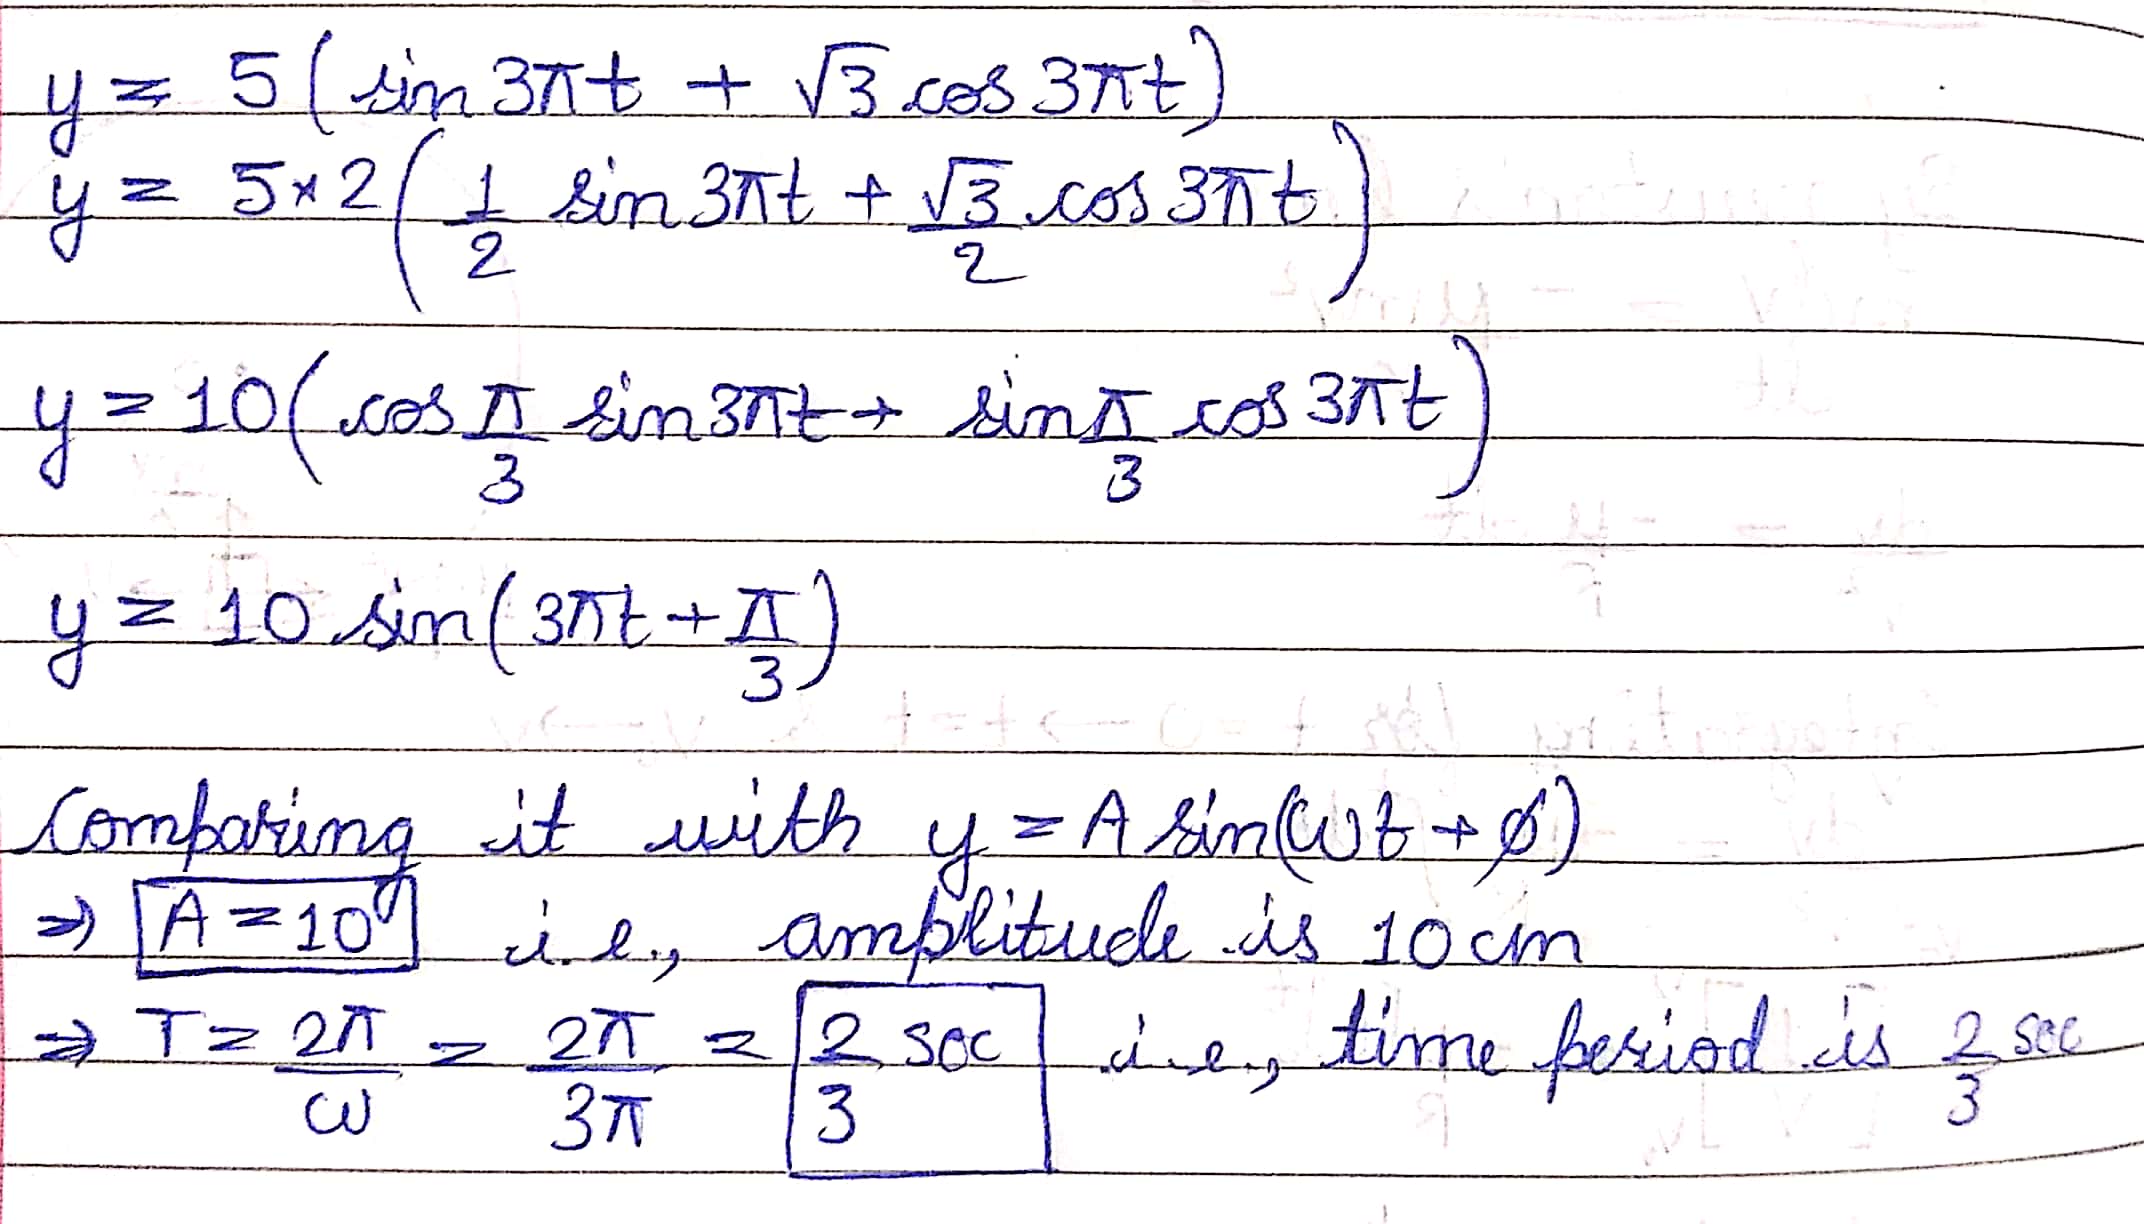 y = 5 ( sin 3πt + √3 cos 3πt )
y = 5×2 ( 1/2 sin 3πt + √3/2 cos 3πt )
y = 10 ( cos π/3 sin 3πt + sin π/3 cos 3πt )
y = 10 sin ( 3πt + π/3 )
Comparing it with y = A sin(ωt + ϕ)
⇒ A = 10 i.e., amplitude is 10 cm
⇒ T = 2π/ω = 2π/3π = 2/3 sec i.e., time period is 2/3 sec